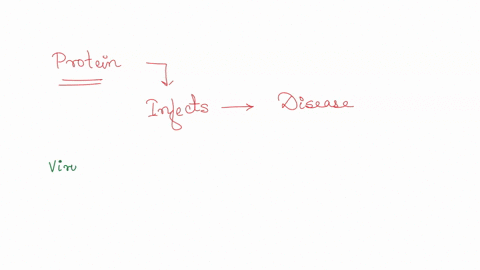 Protein
Infects → Disease
Viru